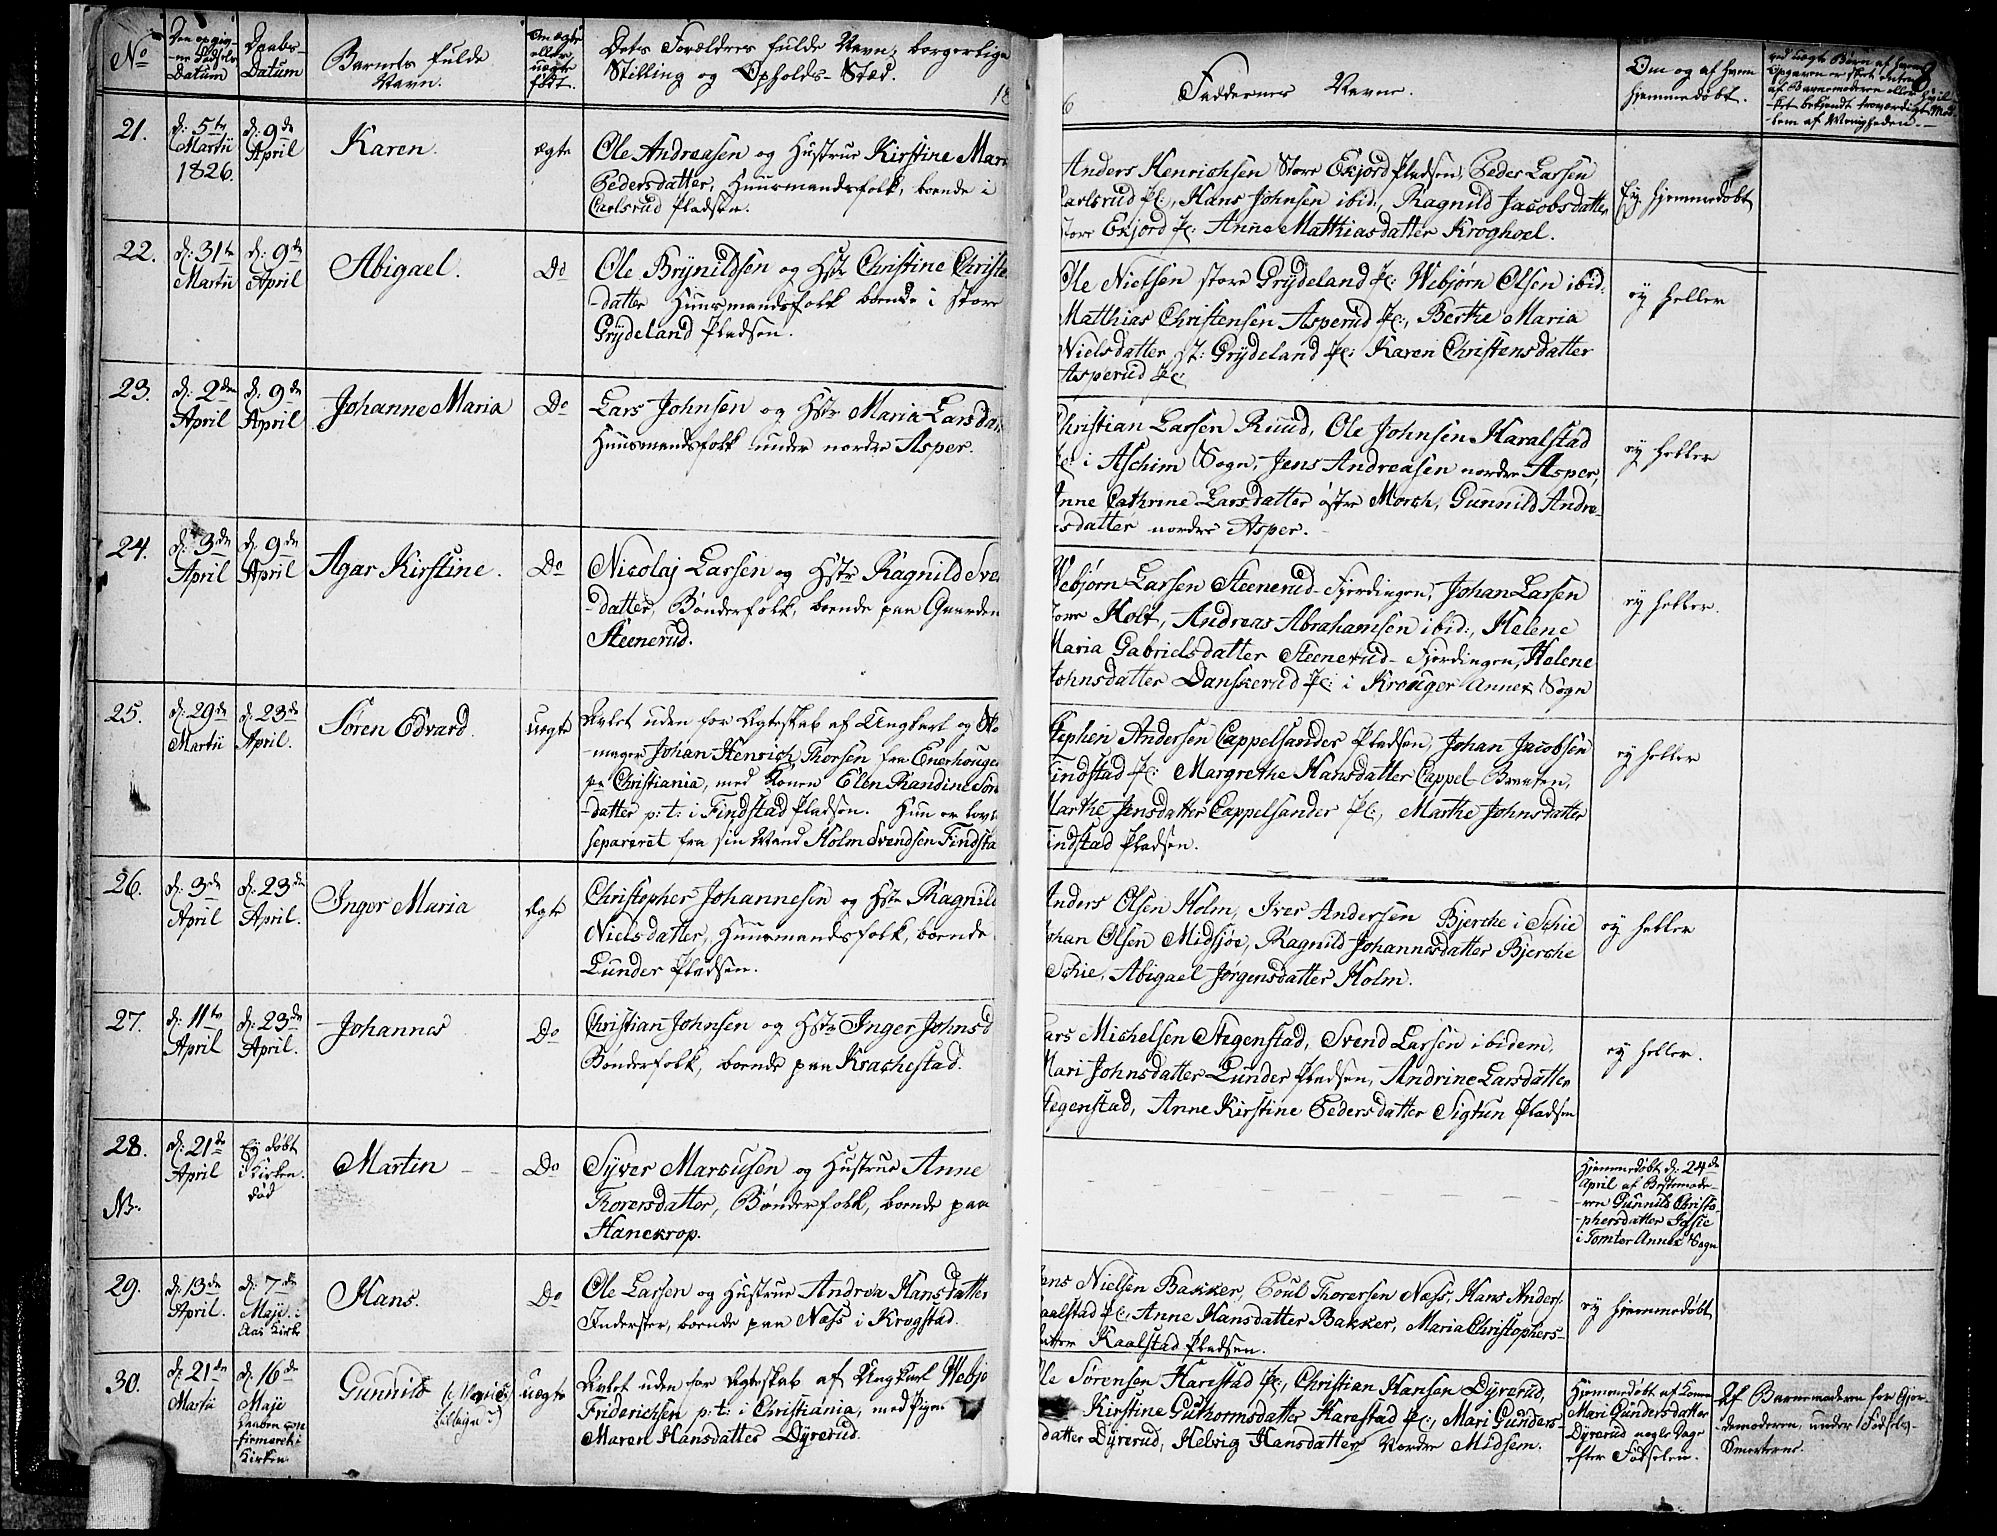 No
Den opgiv-
ne Fødsels
Datum
Daabs-
Datum
Barnets fulde
Navn.
Om ægte
eller
uægte
født.
Dets Forældres fulde Navn, borgerlige
Stilling og Opholds-Sted.
18
6
Faddernes Navne.
Om og af hvem
hjemmedøbt.
21.
d: 5te
Martii
1826.
d: 9de
April
Karen.
ægte
Ole Andreasen og Hustrue Kirstine Mari
Pedersdatter, Huusmandsfolk, boende i
Carlsrud Pladsen.
Anders Henrichsen Store Ekjord Pladsen, Peder Larsen
Carlsrud Pl:, Hans Johnsen ibid:, Ragnild Jacobsdatter
store Ekjord Pl: Anne Matthiasdatter Kroghoel.
Ey hjemmedøbt
22.
d: 31te
Martii
d: 9de
April
Abigael.
Do
Ole Brynildsen og Hstr Christine Christe
-datter Huusmandsfolk boende i store
Grydeland Pladsen.
Ole Nielsen store Grydeland Pl: Webjørn Olsen ibid:
Matthias Christensen Asperud Pl:, Berthe Maria
Nielsdatter st: Grydeland Pl: Karen Christensdatter
Asperud Pl:
ey heller
23.
d: 2den
April
d: 9de
April
Johanne Maria
Do
Lars Johnsen og Hstr Maria Larsda
Huusmandsfolk under nordre Asper.
Christian Larsen Ruud, Ole Johnsen Haralstad
Pl: i Aschim Sogn, Jens Andreasen nordre Asper,
Anne Cathrine Larsdatter østre Morch, Gunnild Andre-
sdatter nordre Asper.
ey heller
24.
d: 3de
April
d: 9de
April
Agar Kirstine.
Do
Nicolaj Larsen og Hstr Ragnild Sve
-datter, Bønderfolk, boende paa Gaarden
Steenerud.
Webjørn Larsen Steenerud-Fjerdingen, Johan Larsen
store Holt, Andreas Abrahamsen ibid:, Helene
Maria Gabrielsdatter Steenerud-Fjerdingen, Helene
Johnsdatter Danskerud Pl: i Krouger Annex Sogn
ey heller.
25.
d: 29de
Martii
d: 23de
April.
Søren Edvard
uægte
Avlet uden for Ægteskab af Ungkarl og Sko
-mager Johan Henrich Thorsen fra Enerhougen
pr Christiania, med Konen Elen Randine Sør
-datter p: t: i Findstad Pladsen. Hun er lovl
separeret fra sin Mand Holm Svendsen Findsta
Stephen Andersen Cappelsander Pladsen, Johan Jacobsen
Findstad Pl: Margrethe Hansdatter Cappel-Braaten,
Marthe Jensdatter Cappelsander Pl:, Marthe Johnsdatter
Findstad Pladsen.
ey heller
26.
d: 3de
April
d: 23de
April.
Inger Maria
Ægte
Christopher Johannesen og Hstr Ragnild
Nielsdatter, Huusmandsfolk, boende
Lunder Pladsen.
Anders Olsen Holm, Iver Andersen Bjerche i Schie
Johan Olsen Midsjøe, Ragnild Johannesdatter Bjerche
Schie, Abigael Jørgensdatter Holm.
ey heller
27.
d: 11te
April
d: 23de
April.
Johannes
Do
Christian Johnsen og Hstr Inger Johnsd
Bønderfolk, boende paa Krachestad.
Lars Michelsen Stegenstad, Svend Larsen ibidem,
Mari Johnsdatter Lunder Pladsen, Andrine Larsdatter
Stegenstad, Anne Kirstine Pedersdatter Sigtun Pladsen
ey heller.
28.
NB.
d: 21de
April
Ey døbt
i Kirken.
død
Martin
Do
Syver Marcusen og Hustrue Anne
Thorersdatter, Bønderfolk, boende paa
Hanekrop.
Hjemmedøbt d: 24de
April af Bestemode-
-ren Gunnild Christo-
-phersdatter Igsie
i Tomter Annex Sogn
29.
d: 13de
April.
d: 7de
Maji i
Aas Kirke
Hans.
Do
Ole Larsen og Hustrue Andrea Hansdatter
Inderster, boende paa Næss i Krogstad.
Hans Nielsen Bakker, Poul Thorersen Næss, Hans Anders
Kaalstad Pl:, Anne Hansdatter Bakker, Maria Christophers-
datter Kaalstad Pladsen.
ey hjemmedøbt
30.
d: 21de
Martii
d: 16de
Maji
Daaben con-
firmeret i
Kirken.
Gunnild
uægte
Avlet uden for Ægteskab af Ungkarl Webjø
Friderichsen p: t: i Christiania, med Pigen
Maren Hansdatter Dyrerud.
Ole Sørensen Harestad Pl:, Christian Hansen Dyrerud,
Kirstine Guthormsdatter Harestad Pl:, Mari Gunders-
datter Dyrerud, Helvig Hansdatter Nordre Midsem.
Hjemmedøbt af Konen
Mari Gundersdatter
Dyrerud nogle Dage
efter Fødselen.
Af Barnemoderen for Gjor-
demoderen, under Fødsels-
Smerterne.